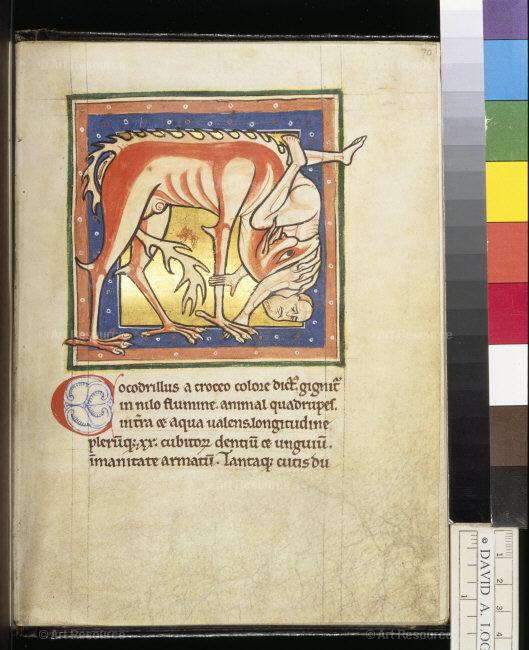 70
Cocodrillus a croceo colore dict᷒. gignit᷒
in nilo flumine. animal quadrupes.
in tr̄a ⁊ aqua ualens. longitudine
plerūq; .xx. cubitoꝝ. dentiū ⁊ unguiū.
īmanitate armatū. Tantaq; cutis du
© DAVID A. LOC
1
2
3
4
1
© Art Resource
© Art Resource